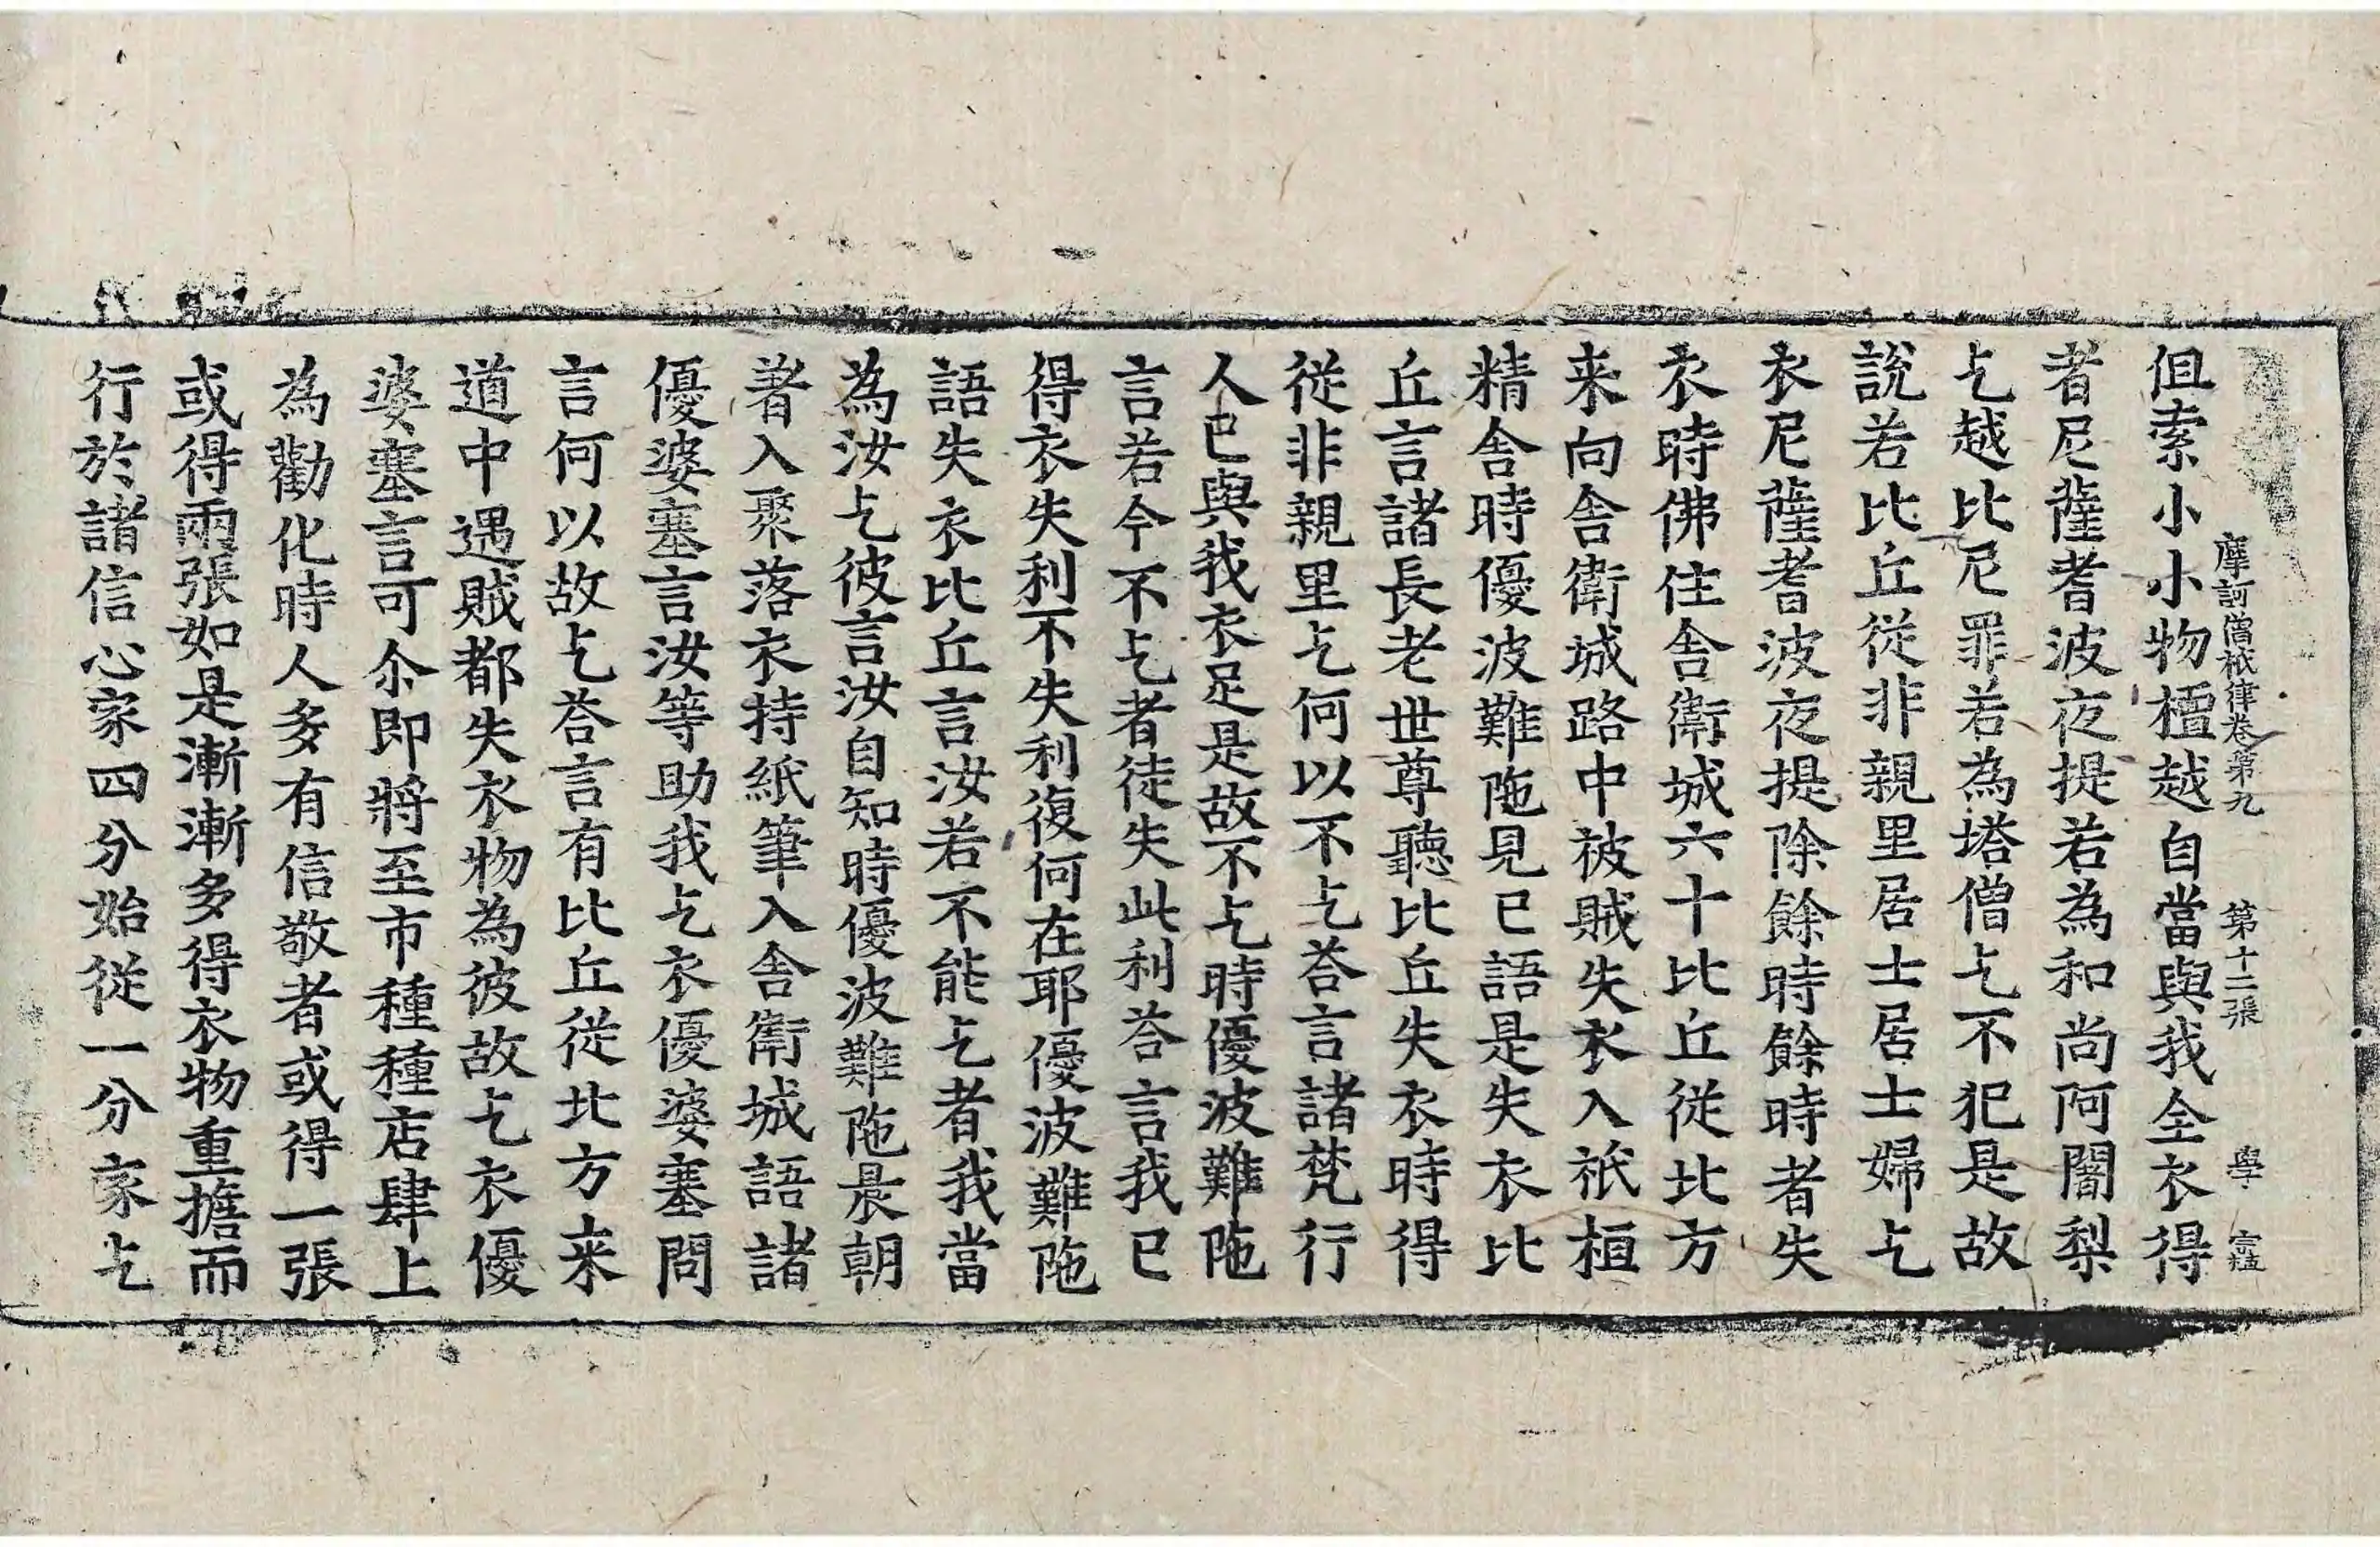 摩訶僧祇律卷第九 第十二張 學
但索小小物檀越自當與我全衣得
者尼薩耆波夜提若為和尚阿闍梨
乞越比尼罪若為塔僧乞不犯是故
說若比丘從非親里居士居士婦乞
衣尼薩耆波夜提除餘時餘時者失
衣時佛住舍衛城六十比丘從北方
来向舍衛城路中被賊失衣入祇桓
精舍時優波難陁見已語是失衣比
丘言諸長老世尊聽比丘失衣時得
從非親里乞何以不乞荅言諸梵行
人已與我衣足是故不乞時優波難陁
言若今不乞者徒失此利荅言我已
得衣失利不失利復何在耶優波難陁
語失衣比丘言汝若不能乞者我當
為汝乞彼言汝自知時優波難陁晨朝
著入聚落衣持紙筆入舍衛城語諸
優婆塞言汝等助我乞衣優婆塞問
言何以故乞荅言有比丘從北方来
道中遇賊都失衣物為彼故乞衣優
婆塞言可尒即將至市種種店肆上
為勸化時人多有信敬者或得一張
或得兩張如是漸漸多得衣物重擔而
行於諸信心家四分始從一分家乞